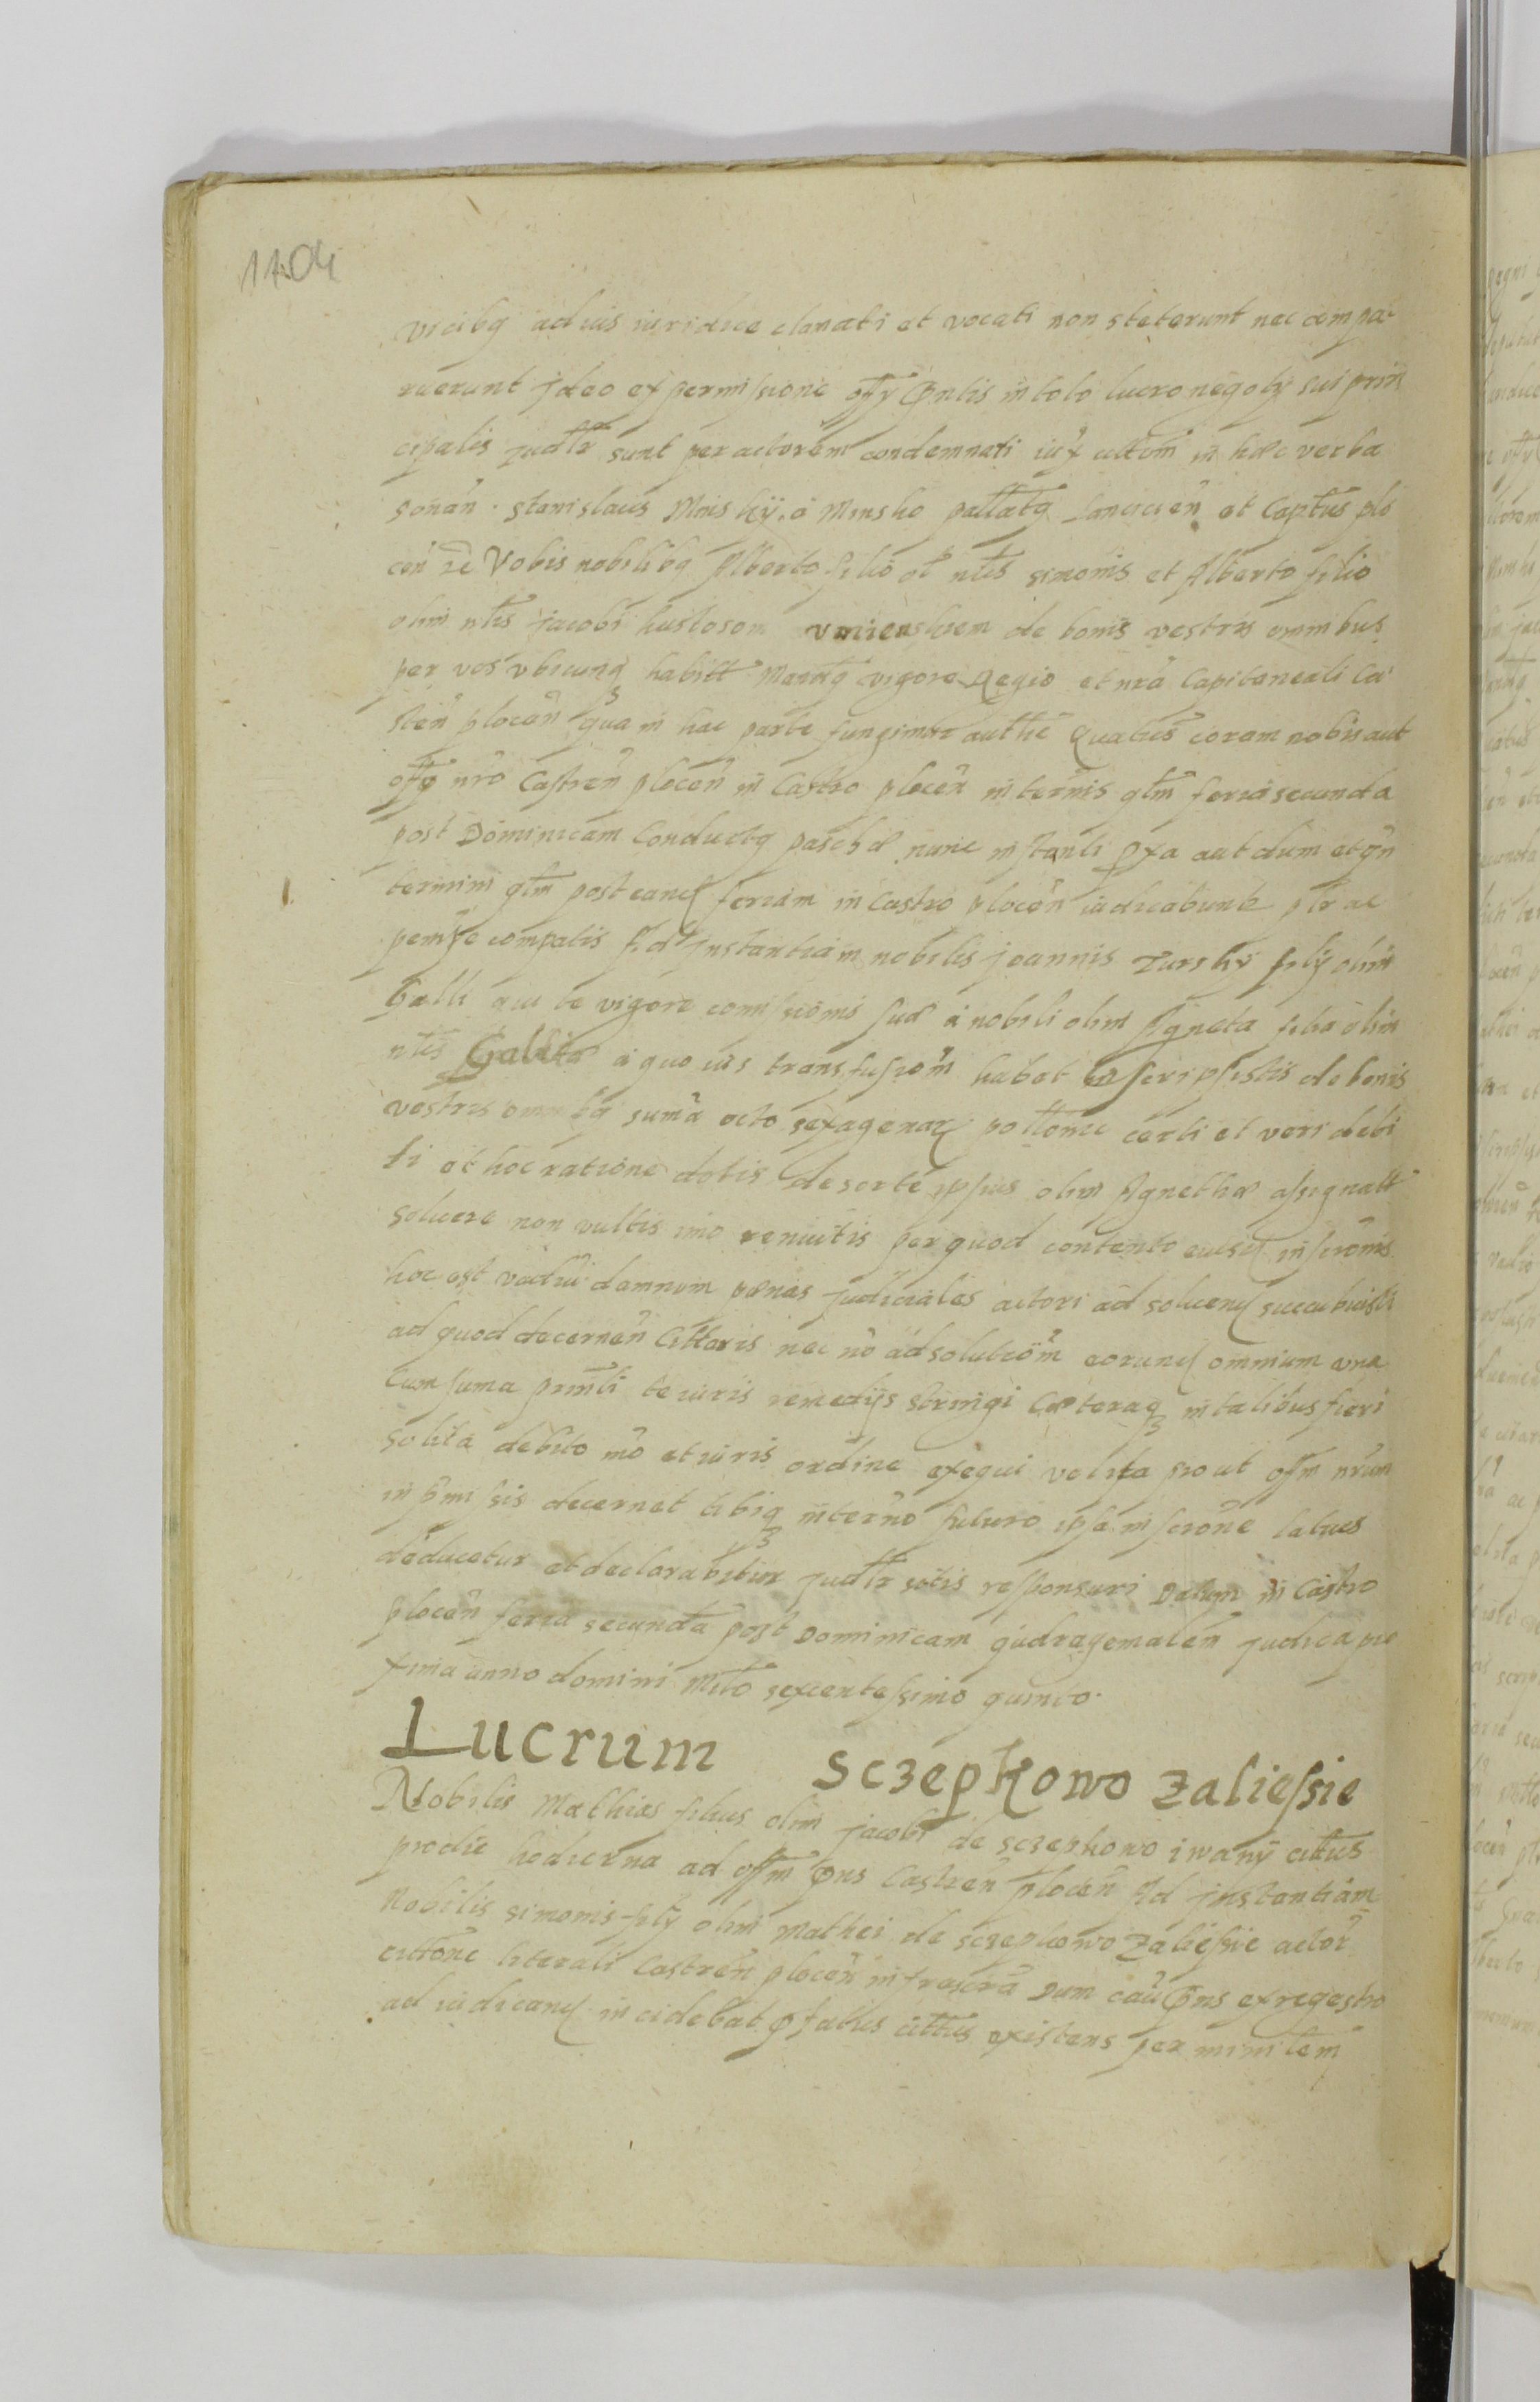 1704
vicibq ad ius iuridice clamati et vocati non steterunt nec compa
ruerunt jdeo ex permissione offy pntis in toto lucro negoty sui prin
cipalis judtr sunt per actorem condemnati iux cittom in hæc verba
sonan. Stanislaus Minsky, a Minsko pallatq Lancicien et Captus plo
cen zc Vobis nobilibq Alberto filio ol nlis simonis et Alberto filio
olim nlis jacobi de bonis vestris omnibus
per vos vbicunq habitt Mandq vigore Regio et nra Capitaneali Ca
stren plocen qua in hac parte fungimur authe Quatus coram nobis aut
offo nro Castren plocen in Castro plocen in ternis qlm feria secunda
post Dominicam Conductq paschæ nunc instanti pxa aut dum et qn
termini qlm post eand feriam in Castro plocen iudicabunt plr ac
pempe compatis Ad Instantiam nobilis joannis Tursky fily olim
Galli qui te vigore comissionis suæ a nobili olim Agneta filia olim
nlis a quo ius transfusiom habet inscripsistis de bonis
vestris omnibq suma octo sexagenar pollonic certi et veri debi
ti et hoc ratione dotis de sorte ipsius olim Agnethæ assignatt
soluere non vultis imo renuitis per quod contento eiusd inscronis
hoc est vadiu damnum pœnas judiciales actori ad soluend succubuisti
ad quod decernen Cittaris nec no ad solutiom eorund omnium vna
Cum suma prinli te iuris remedijs stringi Cæteraq in talibus fieri
solita debito mo et iuris ordine exequi velita prout offm nrum
in pmissis decernet tibiq in terno futuro ipsa inscrone latius
deducetur et declarabitur judtr sitis responsuri Datum in Castro
plocen feria secunda post Dominicam quadragemalem judica pro
xima anno domini Mllo sexcentessimo quinto.
Lucrum Sczepkowo Zaliessie
Nobilis Mathias filius olim jacobi de sczepkowo iwany cittus
pro die hodierna ad offm pns Castren plocen Ad jnstantiam
Nobilis simonis fily olim Mathei de sczepkowo Zaliessie actor
cittone literali Castren plocen infrascra Dum cau pns ex regestro
ad iudicand incidebat pfatus cittus existens per ministem